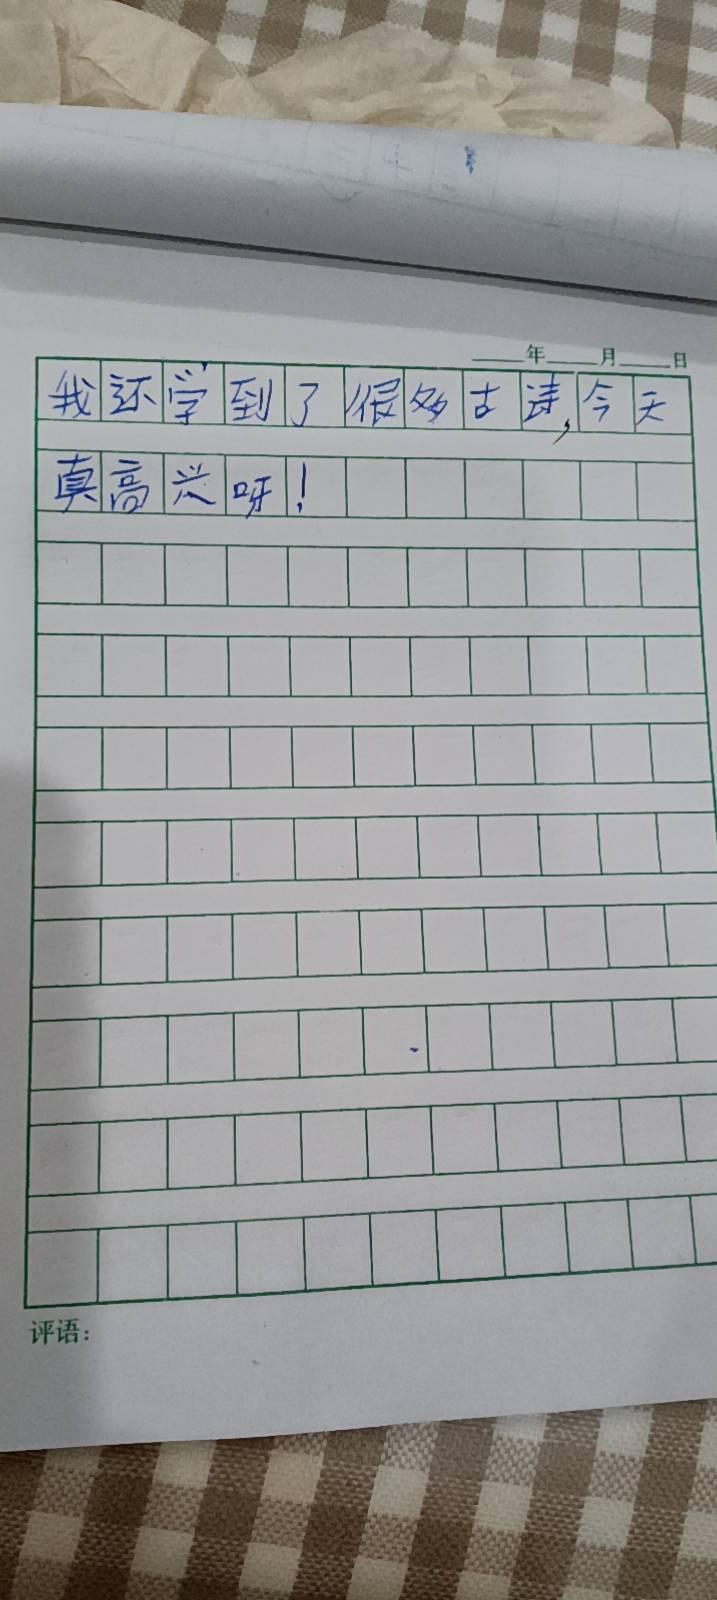 ____年____月____日
我还学到了很多古诗,今天
真高兴呀!
评语: